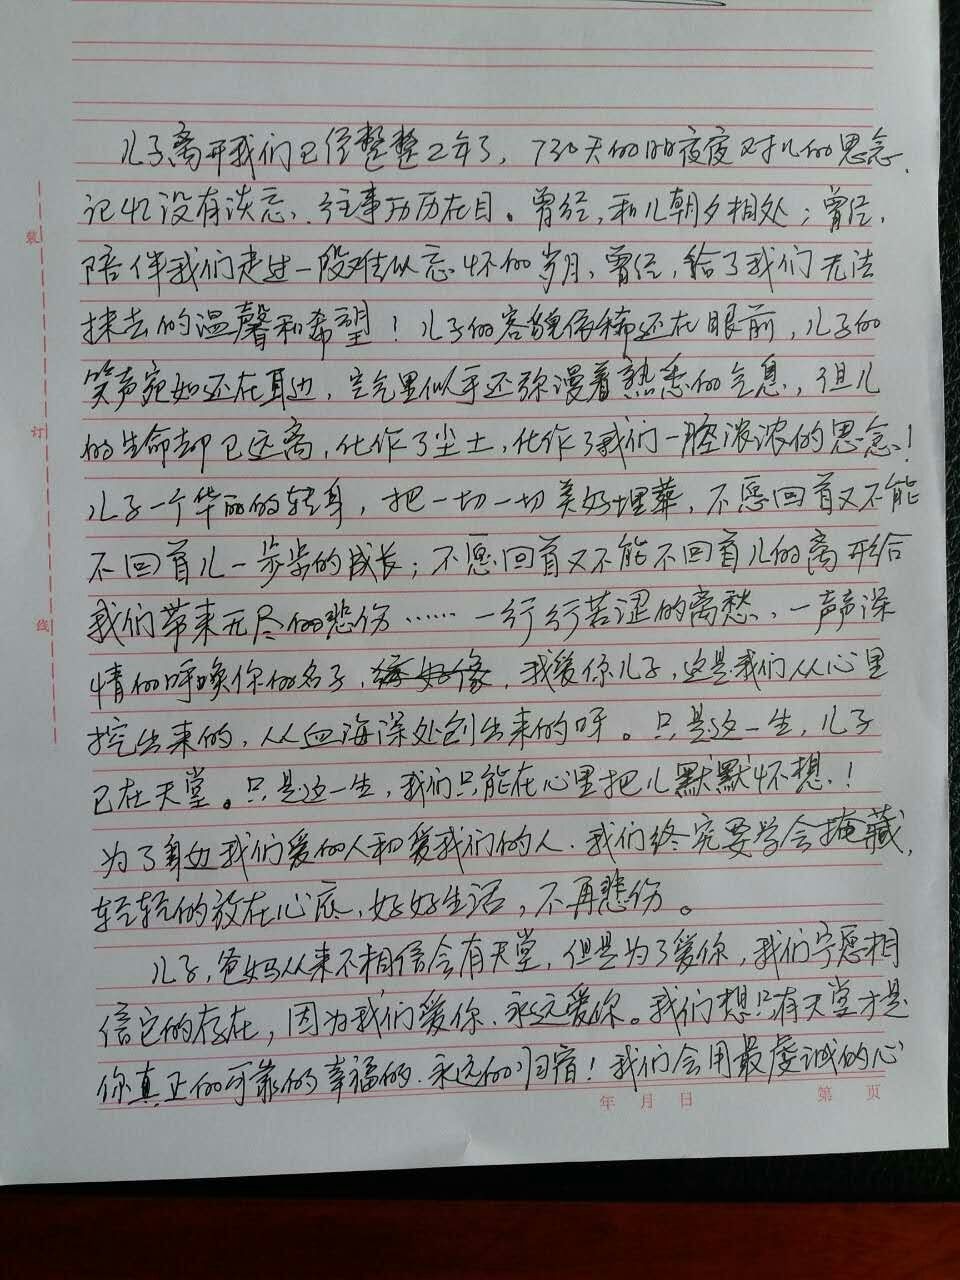 儿子离开我们已经整整2年了，730天的日日夜夜对儿的思念，
记忆没有淡忘，往事历历在目。曾经，和儿朝夕相处；曾经，
陪伴我们走过一段难以忘怀的岁月，曾经，给了我们无法
抹去的温馨和希望！儿子的容貌依稀还在眼前，儿子的
笑声宛如还在耳边，空气里似乎还弥漫着熟悉的气息，但儿
的生命却已远离，化作了尘土，化作了我们一腔浓浓的思念！
儿子一个华丽的转身，把一切一切美好埋葬，不愿回首又不能
不回首儿一步步的成长；不愿回首又不能不回首儿的离开给
我们带来无尽的悲伤……一行行苦涩的离愁、一声声深
情的呼唤你的名子，我爱你儿子，这是我们从心里
挖出来的，从血海深处创出来的呀。只是这一生，儿子
已在天堂。只是这一生，我们只能在心里把儿默默怀想！
为了身边我们爱的人和爱我们的人，我们终究要学会掩藏，
轻轻的放在心底，好好生活，不再悲伤。
儿子，爸妈从来不相信会有天堂，但是为了爱你，我们宁愿相
信它的存在，因为我们爱你、永远爱你。我们想只有天堂才是
你真正的可靠的幸福的、永远的归宿！我们会用最虔诚的心
装
订
线
年 月 日
第 页